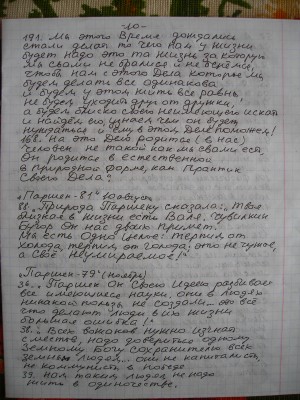 -10-
191. Мы этого Время дождались
стали делать то что нам у жизни
будет надо это та жизнь за которую
мы с вами не бралися и не беремся,
чтобы нам с этого Дела которые мы
будем делать все одинаково
и будем у этом жить все равны
не будем уходить друг от дружки,
а будем близко своего неимеющего искать
и найдем его, учтем чем он будет
нуждатся и ему в этом Деле поможем!
168. На это Дело родится (в нас)
человек не такой как мы с вами есть
Он родится в естественной
в природной форме, как Практик
Своего Дела.
«Паршек-81» 10 август
88. Природа Паршеку сказала: твоё
близкое в жизни есть Вале. Чувилкин
бугор Он нас двоих примет.
Мы есть Одно целое: терпим от
холода, терпим от голода, это не чужое,
а Своё Неумираемое!
«Паршек-79» (ноябрь)
34. Паршек Он Своею Идеею разбивает
все имеющиеся науки, они в людях
никакой пользы не создали. это всё
что делают люди в их жизни
большая ошибка!
38. Всех вожаков нужно изгнать
с места, надо довериться одному
Земному Богу Сохранителю всех
Земных людей... они не капиталисты,
не коммунисты в победе
39. Нам таким людям не надо
жить в одиночестве.